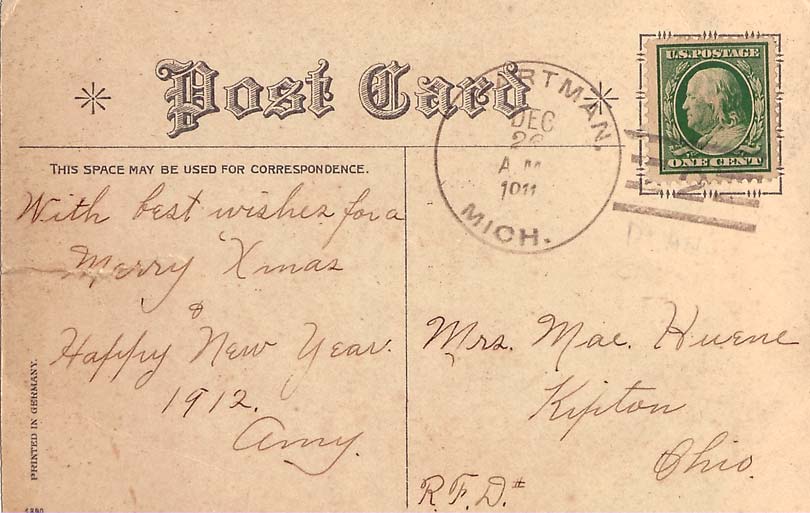 Post Card
THIS SPACE MAY BE USED FOR CORRESPONDENCE.
With best wishes for a
Merry Xmas
&
Happy New Year.
1912.
Amy.
PRINTED IN GERMANY.
HARTMAN,
DEC
A.M.
1911
MICH.
U.S. POSTAGE
ONE CENT
Mrs. Mae. Huene
Kipton
Ohio.
R.F.D.#